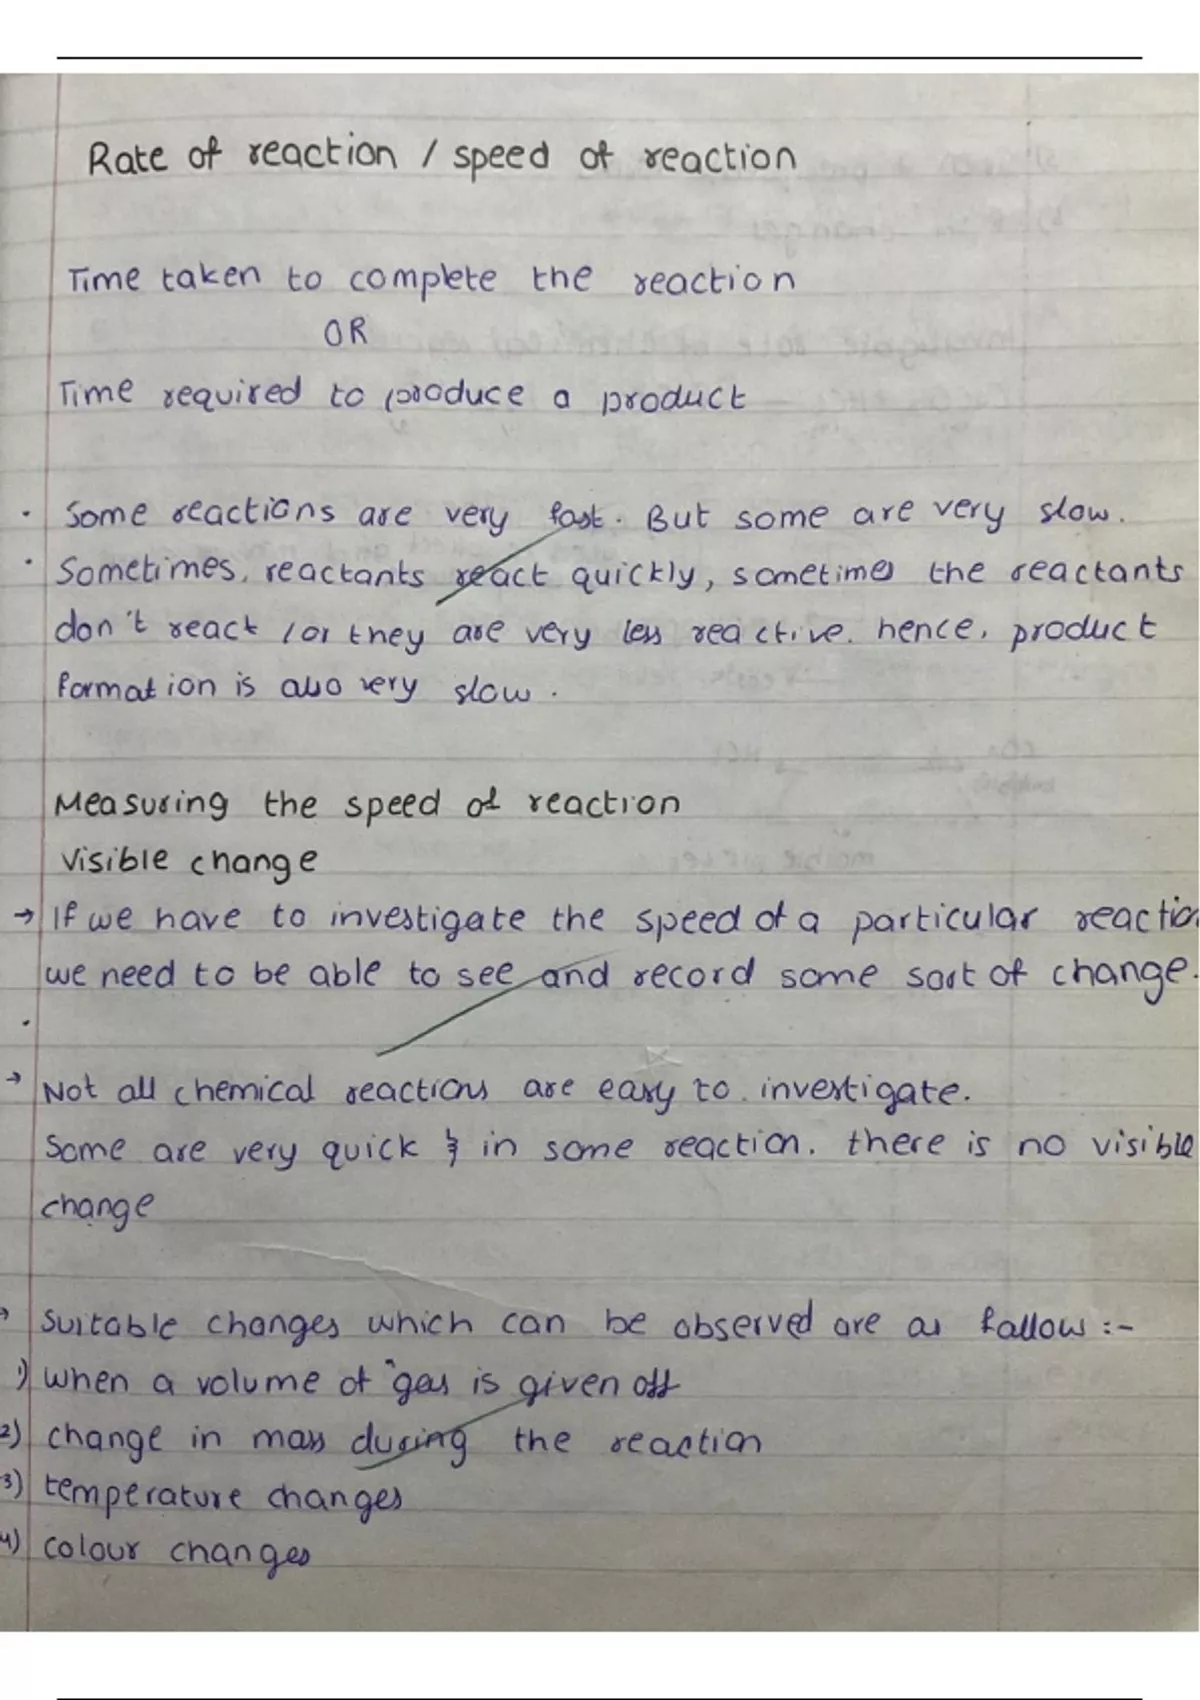 Rate of reaction / speed of reaction
Time taken to complete the reaction
OR
Time required to produce a product
· Some reactions are very fast. But some are very slow.
· Sometimes, reactants react quickly, sometimes the reactants
don't react / or they are very less reactive. hence, product
formation is also very slow.
Measuring the speed of reaction
Visible change
→ If we have to investigate the speed of a particular reaction
we need to be able to see and record some sort of change.
→ Not all chemical reactions are easy to investigate.
Some are very quick & in some reaction. there is no visible
change
→ Suitable changes which can be observed are as follow :-
1) when a volume of gas is given off
2) change in mass during the reaction
3) temperature changes
4) colour changes